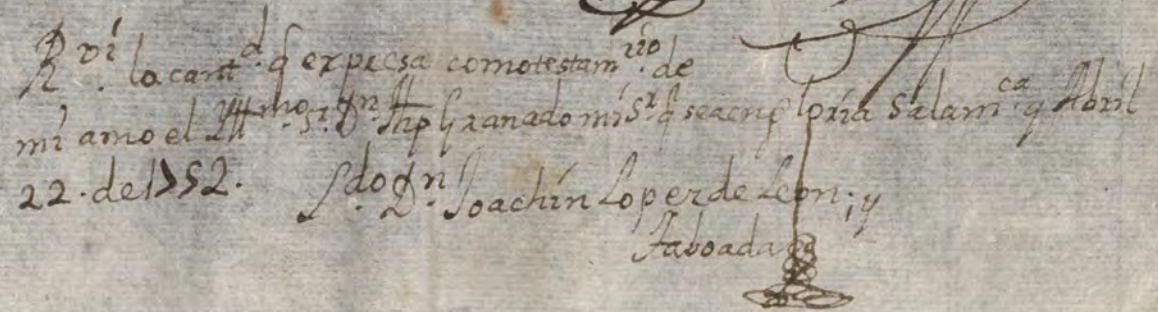 R.vi la cant.d q expresa como testam.rio de
mi amo el Ill.mo S.r D.n Ph.e Granado mi S.r q sea en gloria Salam.ca y Abril
22. de 1752. D.n Joachin Loper de Leon; y
Taboada